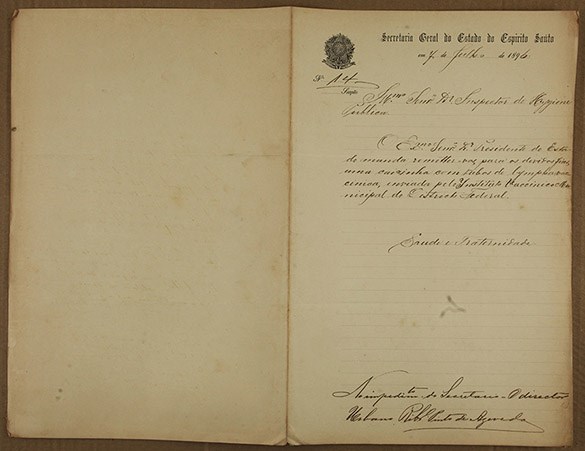 Secretaria Geral do Estado do Espirito Santo
em 7 de Julho de 1896
Nº 14
Secção
Illmo Senr Dr Inspector de Hygiene
Publica
O Exmo Senr Dr Presidente do Esta-
do manda remetter-vos para os devidos fins,
uma caixinha com tubos de lympha vac-
cinica, enviada pelo Instituto Vaccinico Mu-
nicipal do Districto Federal.
Saude e Fraternidade
No impedimto do Secretario - O director
Urbano Ribº Pinto de Azevedo